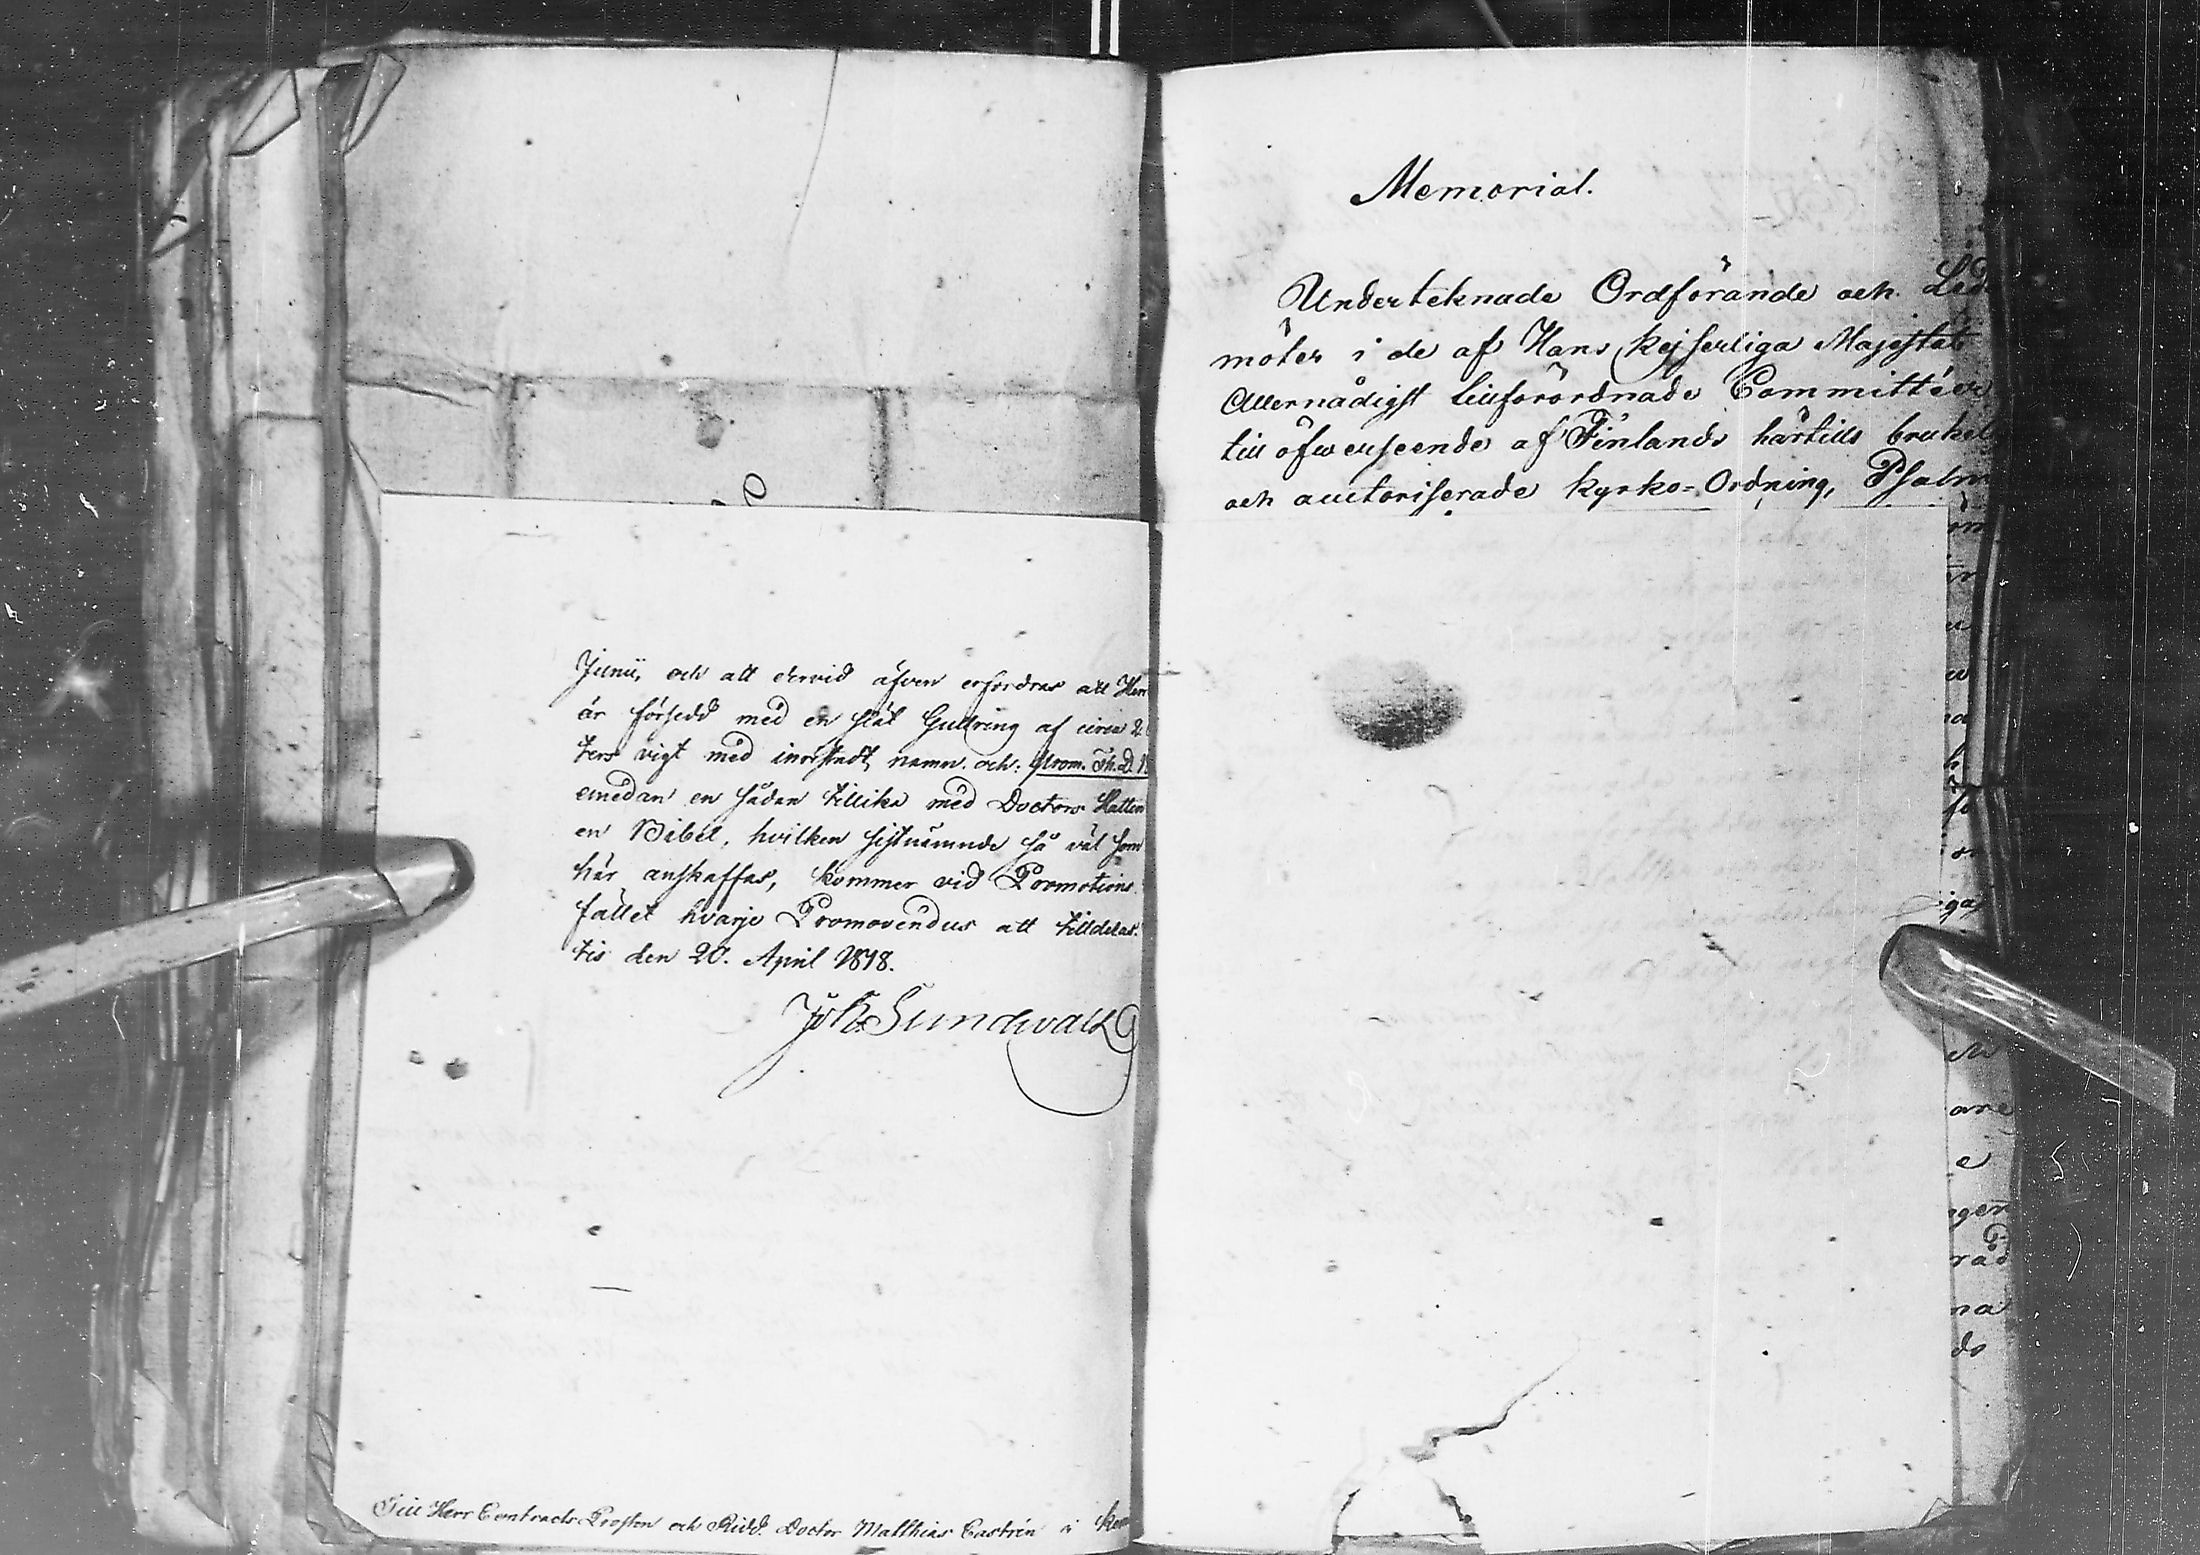 Junii, och att dervid äfven erfordras att Herr
är försedd med en slät Gullring af circa 2
kers vigt med inristadt namn och: Prom. Th. D.
emedan en sådan tillika med Doctors Hatten
en Bibel, hvilken sistnämnde så väl som
här anskaffas, kommer vid Promotions
fallet hvarje Promovendus att tilldelas.
tis den 20. April 1818.
Joh. Sundwall
Till Herr Contracts Prosten och Ridd. Doctor Matthias Castrén i Kem
Memorial.
Underteknade Ordförande och Led
möter i de af Hans Kejserliga Majestät
Allernådigst tillförordnade Committéer
till öfwerseende af Finlands härtills brukel
och auctoriserade Kyrko-Ordning, Psalm
ör
er
iga
are
e
gen
råd
na
do